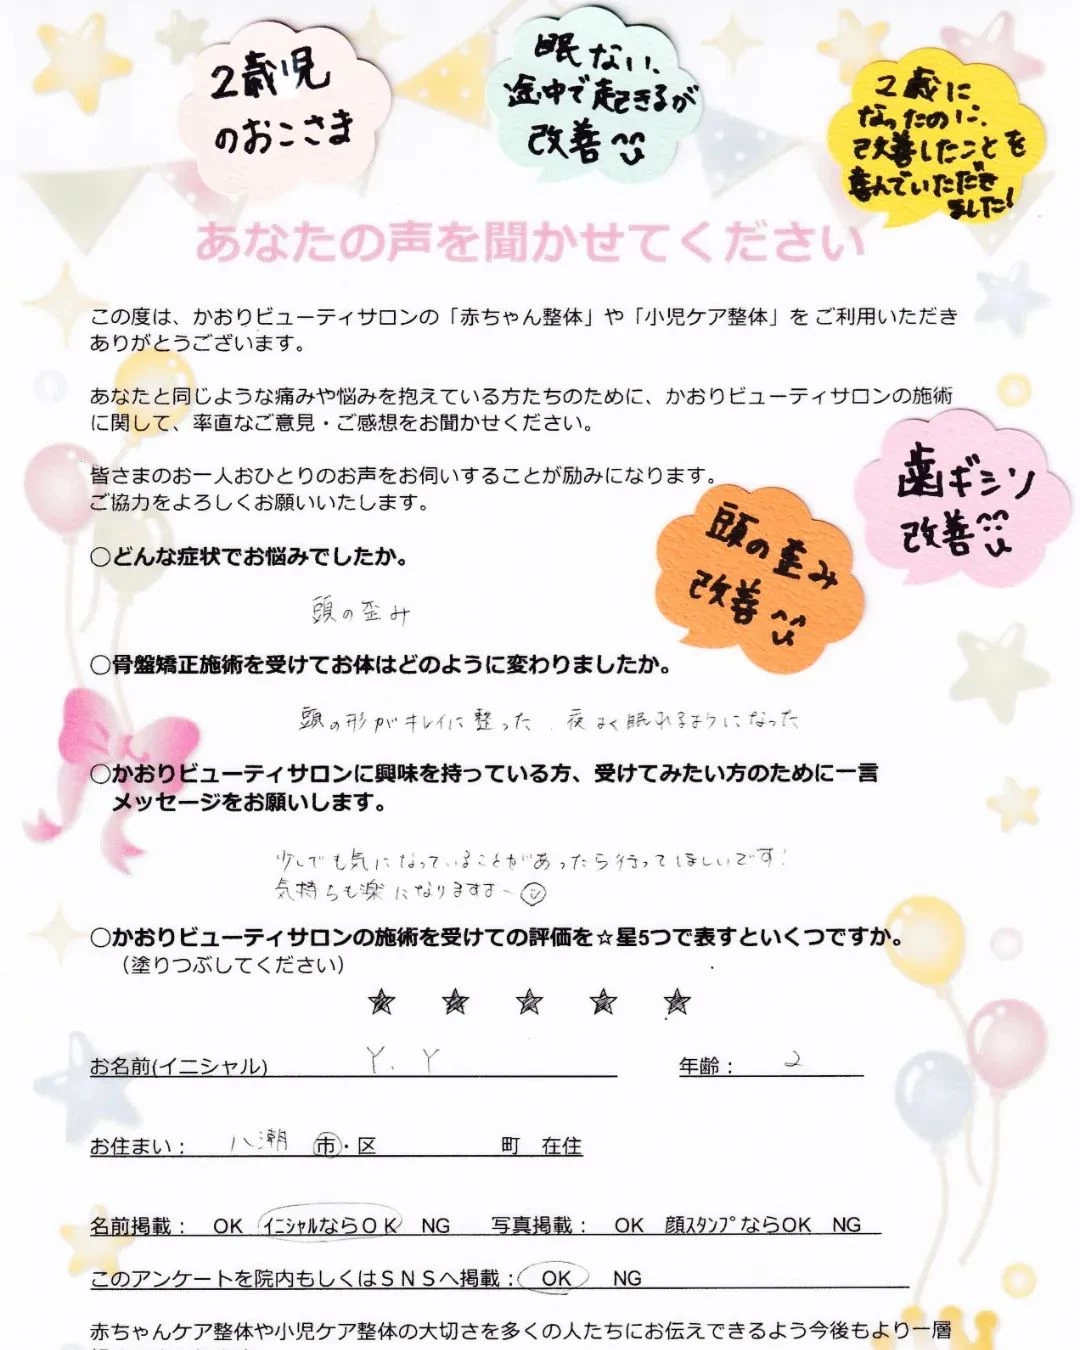 2歳児
のおこさま
眠ない、
途中で起きるが
改善
2歳に
なったのに、
改善したことを
喜んでいただき
ました!
あなたの声を聞かせてください
この度は、かおりビューティサロンの「赤ちゃん整体」や「小児ケア整体」をご利用いただき
ありがとうございます。
あなたと同じような痛みや悩みを抱えている方たちのために、かおりビューティサロンの施術
に関して、率直なご意見・ご感想をお聞かせください。
皆さまのお一人おひとりのお声をお伺いすることが励みになります。
ご協力をよろしくお願いいたします。
歯ギシリ
改善
頭の歪み
改善
○どんな症状でお悩みでしたか。
頭の歪み
○骨盤矯正施術を受けてお体はどのように変わりましたか。
頭の形がキレイに整った、夜よく眠れるようになった
○かおりビューティサロンに興味を持っている方、受けてみたい方のために一言
メッセージをお願いします。
少しでも気になっていることがあったら行ってほしいです!
気持ちも楽になりますよ〜
○かおりビューティサロンの施術を受けての評価を☆星5つで表すといくつですか。
（塗りつぶしてください）
★ ★ ★ ★ ★
お名前(イニシャル) Y.Y 年齢： 2
お住まい： 八潮 市・区 町 在住
名前掲載： OK ｲﾆｼｬﾙならＯＫ NG 写真掲載： OK 顔ｽﾀﾝﾌﾟならOK NG
このアンケートを院内もしくはＳＮＳへ掲載： OK NG
赤ちゃんケア整体や小児ケア整体の大切さを多くの人たちにお伝えできるよう今後もより一層